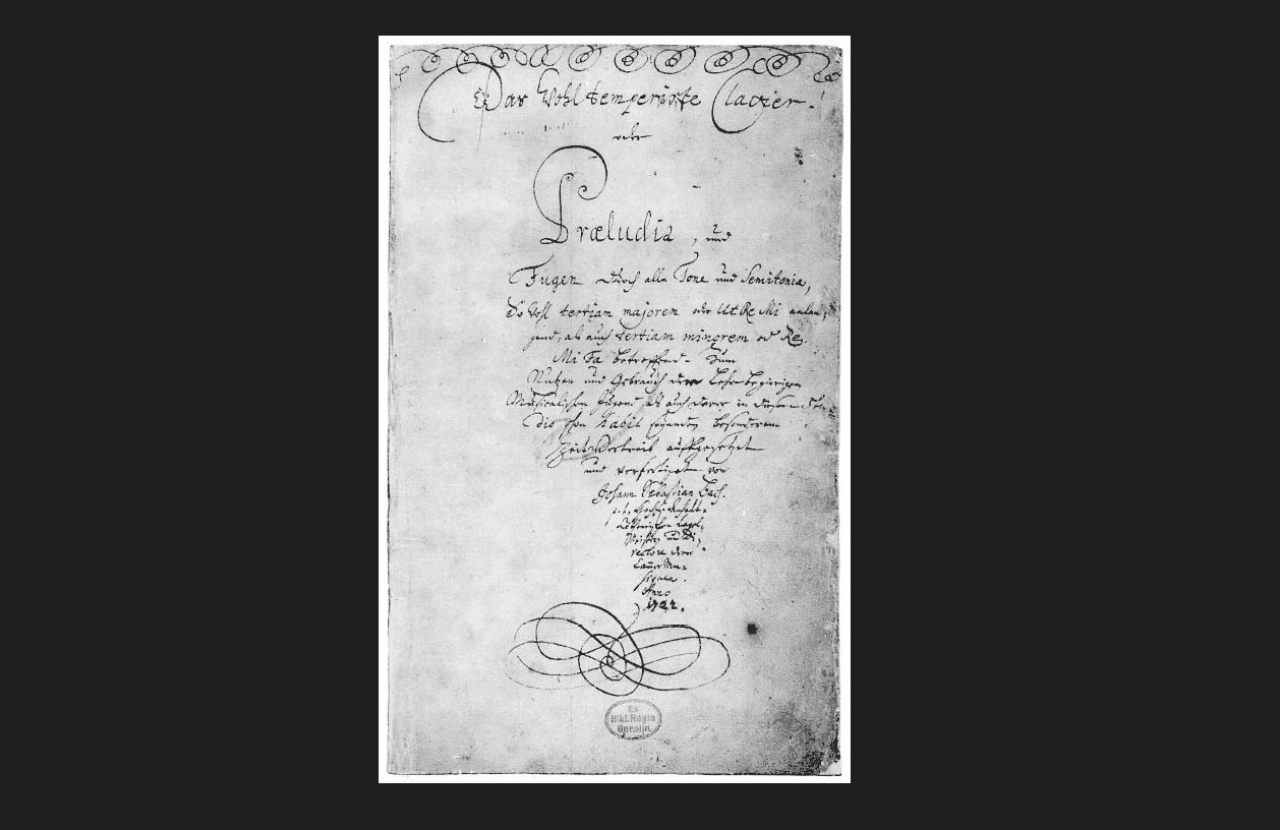 Das Wohltemperirte Clavier.
oder
Præludia, und
Fugen durch alle Tone und Semitonia,
So wohl tertiam majorem oder Ut Re Mi anlan-
gend, als auch tertiam minorem oder Re
Mi Fa betreffend. Zum
Nutzen und Gebrauch der Lehrbegierigen
Musicalischen Jugend, als auch derer in diesem stu-
dio schon habil seyenden besonderem
Zeitvertreib auffgesetzet
und verfertiget von
Johann Sebastian Bach.
p. t. Hochfürstlich Anhalt-
Cöthenischen Capel-
Meistern und Di-
rectore derer
Cammer Mu-
siquen.
Anno
1722.
Ex
Bibl. Regia
Berolin.